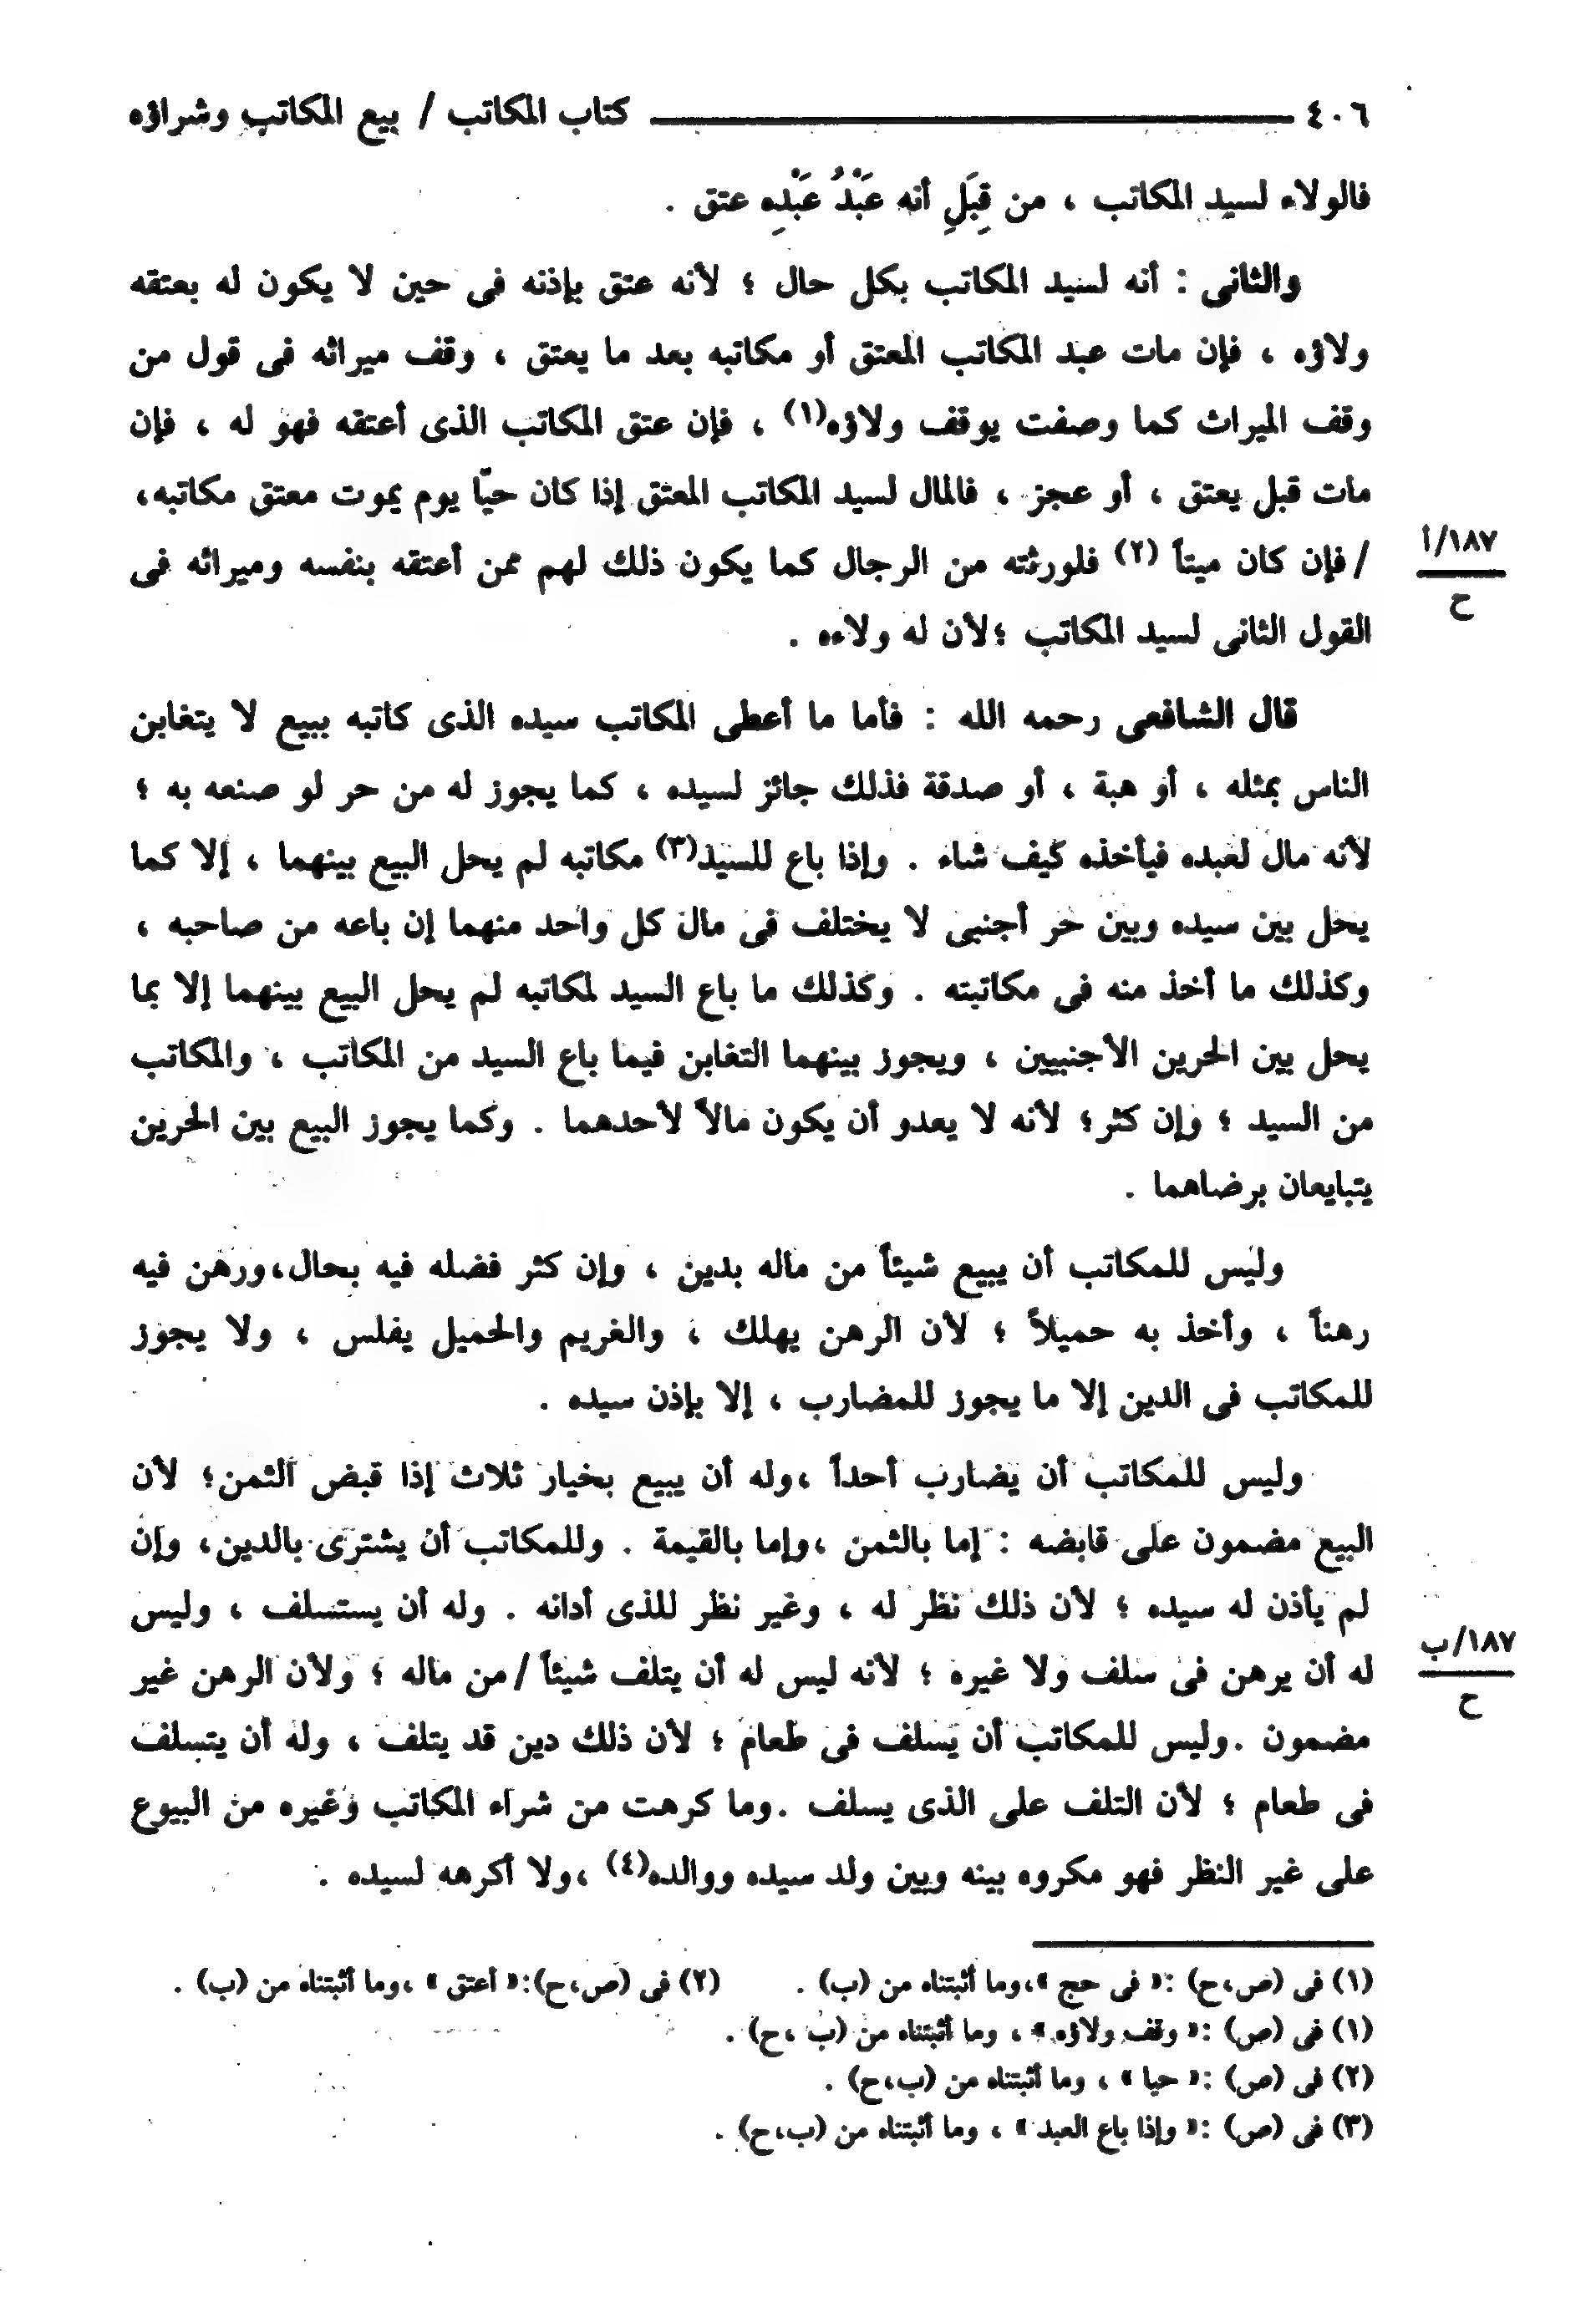 ٤٠٦ كتاب المكاتب / بيع المكاتب وشراؤه
فالولاء لسيد المكاتب ، من قِبَلِ أنه عَبْدُ عَبْدِه عتق .
والثانى : أنه لسيد المكاتب بكل حال ؛ لأنه عتق بإذنه فى حين لا يكون له بعتقه
ولاؤه ، فإن مات عبد المكاتب المعتق أو مكاتبه بعد ما يعتق ، وقف ميراثه فى قول من
وقف الميراث كما وصفت يوقف ولاؤه(١) ، فإن عتق المكاتب الذى أعتقه فهو له ، فإن
مات قبل يعتق ، أو عجز ، فالمال لسيد المكاتب المعتق إذا كان حيّا يوم يموت معتق مكاتبه،
/ فإن كان ميتاً (٢) فلورثته من الرجال كما يكون ذلك لهم ممن أعتقه بنفسه وميراثه فى
١٨٧/أ
ح
القول الثانى لسيد المكاتب ؛لأن له ولاءه .
قال الشافعى رحمه الله : فأما ما أعطى المكاتب سيده الذى كاتبه ببيع لا يتغابن
الناس بمثله ، أو هبة ، أو صدقة فذلك جائز لسيده ، كما يجوز له من حر لو صنعه به ؛
لأنه مال لعبده فيأخذه كيف شاء . وإذا باع للسيد(٣) مكاتبه لم يحل البيع بينهما ، إلا كما
يحل بين سيده وبين حر أجنبى لا يختلف فى مال كل واحد منهما إن باعه من صاحبه ،
وكذلك ما أخذ منه فى مكاتبته . وكذلك ما باع السيد لمكاتبه لم يحل البيع بينهما إلا بما
يحل بين الحرين الأجنبيين ، ويجوز بينهما التغابن فيما باع السيد من المكاتب ، والمكاتب
من السيد ؛ وإن كثر؛ لأنه لا يعدو أن يكون مالاً لأحدهما . وكما يجوز البيع بين الحرين
يتبايعان برضاهما .
وليس للمكاتب أن يبيع شيئاً من ماله بدين ، وإن كثر فضله فيه بحال،ورهن فيه
رهناً ، وأخذ به حميلاً ؛ لأن الرهن يهلك ، والغريم والحميل يفلس ، ولا يجوز
للمكاتب فى الدين إلا ما يجوز للمضارب ، إلا بإذن سيده .
وليس للمكاتب أن يضارب أحداً ،وله أن يبيع بخيار ثلاث إذا قبض الثمن؛ لأن
البيع مضمون على قابضه : إما بالثمن ،وإما بالقيمة . وللمكاتب أن يشترى بالدين، وإن
لم يأذن له سيده ؛ لأن ذلك نظر له ، وغير نظر للذى أدانه . وله أن يستسلف ، وليس
له أن يرهن فى سلف ولا غيره ؛ لأنه ليس له أن يتلف شيئاً / من ماله ؛ ولأن الرهن غير
١٨٧/ب
ح
مضمون .وليس للمكاتب أن يسلف فى طعام ؛ لأن ذلك دين قد يتلف ، وله أن يتسلف
فى طعام ؛ لأن التلف على الذى يسلف .وما كرهت من شراء المكاتب وغيره من البيوع
على غير النظر فهو مكروه بينه وبين ولد سيده ووالده(٤) ،ولا أكرهه لسيده .
(١) فى (ص،ح) :« فى حج »،وما أثبتناه من (ب) . (٢) فى (ص،ح):« أعتق » ،وما أثبتناه من (ب) .
(١) فى (ص) :« وقف ولاؤه » ، وما أثبتناه من (ب ،ح) .
(٢) فى (ص) :« حيا » ، وما أثبتناه من (ب،ح) .
(٣) فى (ص) :« وإذا باع العبد » ، وما أثبتناه من (ب،ح) .